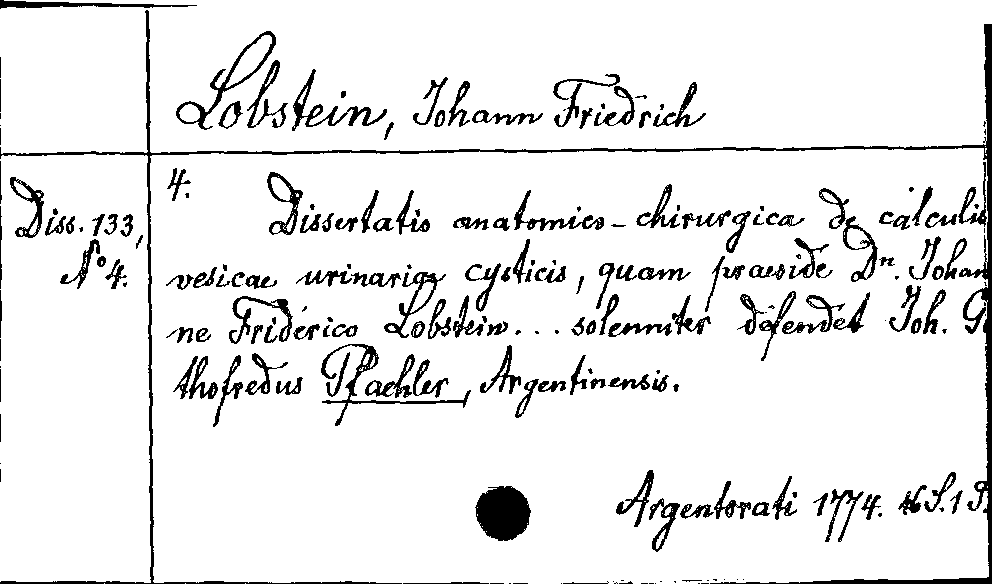 Lobstein, Johann Friedrich
Diss. 133,
No 4.
4.
Dissertatio anatomico-chirurgica de calculis
vesicae urinariae cysticis, quam praeside Dn. Johan
ne Friderico Lobstein... solenniter defendet Joh. G
thofredus Pfaehler, Argentinensis.
Argentorati 1774. 46 S. 1